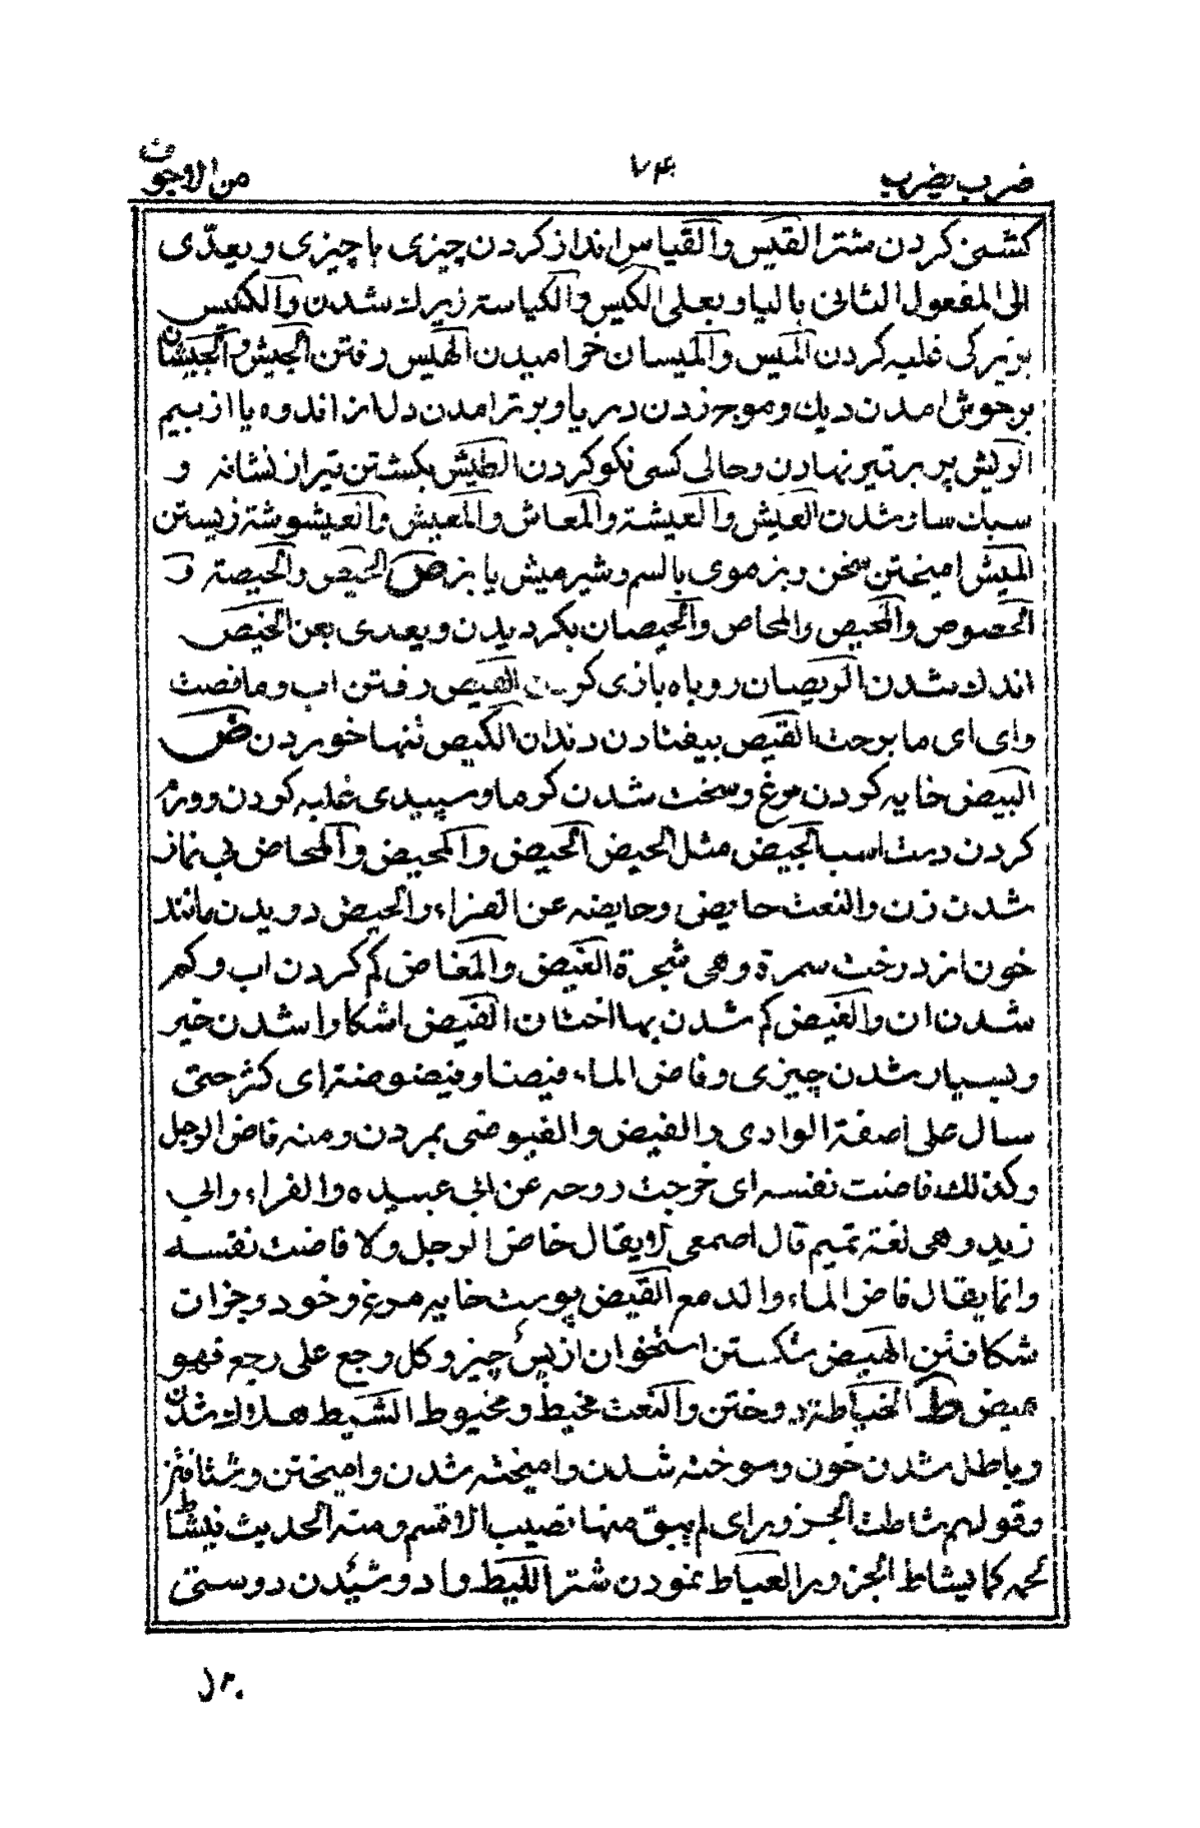 ضرب يضرب
۷۴
من الاجوف
كشنى كردن شتر القيس والقياس انداز كردن چيزى با چيزى و يعدّى
الى المفعول الثانى بالباو بعلى الكيس والكياسة زيرك شدن والكيس
بزيركى غلبه كردن الميس والميسان خراميدن الهيس رفتن الجيش والجيشان
برجوش امدن ديك و موج زدن دريا و برترامدن دل از اندوه يا از بيم
الريش پر بر تير نهادن و حالى كسى نكو كردن الطيش بكشتن تير از نشانه و
سبك سار شدن العيش والعيشة والمعاش والمعيش والعيشوشة زيستن
الميش اميختن سخن و بز موى با لسم و شير ميش يا بز ص الحيص والحيصة و
الحصوص والمحيص والمحاص والحيصان بكرديدن و يعدى بعن الخيص
اندك شدن الريصان روباه بازى كردن الفيص رفتن اب و ما فصت
واى اى ما برحت القيص بيفتادن دندان الكيص تنها خوردن ض
البيض خايه كردن مرغ و سخت شدن كرما و سپيدى غلبه كردن و ورم
كردن دست اسب الجيض مثل الحيض الحيض والمحيض والمحاض بى نماز
شدن زن والنعت حايض و حايضه عن الفراء والحيض دويدن مانند
خون از درخت سمرة وهى شجرة الغيض والمغاض كم كردن اب و كم
شدن ان والغيض كم شدن بها اختان الفيض اشكاوا شدن خبر
و بسيار شدن چيزى و فاض الماء فيضا و فيضوضة اى كثر حتى
سال على اصفة الوادى والفيض والفيوضى بمردن و منه فاض الرجل
وكذلك فاضت نفسه اى خرجت روحه عن ابى عبيده والفراء وابى
زيد وهى لغة تميم قال اصمعى لا يقال فاض الرجل ولا فاضت نفسه
وانما يقال فاض الماء والدمع القيض پوست خايه مرغ و خود و جزان
شكافتن الهيض شكستن استخوان از پس چيز و كل وجع على رجع فهو
هيض ط الخياطة دوختن والنعت مخيط و مخيوط الشيط هلاك شدن
و باطل شدن خون و سوخته شدن و اميخته شدن و اميختن و شتافتن
و قولهم شاطت الجزور اى لم يبق منها نصيب الا قسم و منه الحديث نيشاط
لحمه كما يشاط الجزور العياط نمودن شتر الليط وا دوشيدن دوستى